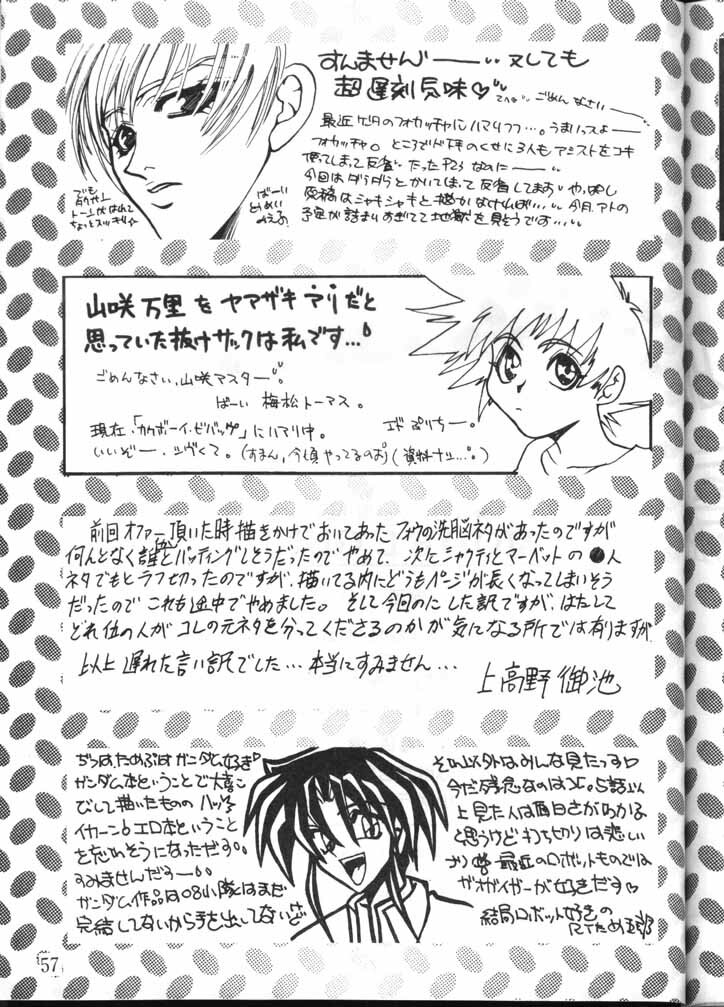 すんませんーーー 又しても
超遅刻気味♡
ごめんなさいーー
最近
フォカッチャにハマりつつ…。うまいっスよー
フォカッチャ。ところで
くせに3人もアシストをコキ
使ってしまって反省
だったP23なのに
今回はダラダラとかいてしまって反省してます
やっぱし
原稿はシャキシャキと描かなければ…
今月アトの
予定が詰まりすぎてて地獄を見そうです…
でも
トーンがはれて
ちょっとスッキリ
山咲万里をヤマザキマリだと
思っていた抜けサックは私です…
ごめんなさい、山咲マスター。
ばーい 梅松トーマス。
現在、「カウボーイ・ビバップ」にハマリ中。
いいぞー
(すまん、今頃やってるのお)(資料ナシ…。)
エドぷりちー。
前回オファー頂いた時描きかけでおいてあったフォウの洗脳ネタがあったのですが
何んとなく誰かとバッティングしそうだったのでやめて、次にシャクティとマーベットの●人
ネタでもとラフ切ったのですが、描いてる内にどうもページが長くなってしまいそう
だったのでこれも途中でやめました。そして今回のにした訳ですが、はたして
どれ位の人がコレの元ネタを分ってくださるのかが気になる所では有りますが
以上遅れた言い訳でした…本当にすみません…
上高野御池
じつはためぶはガンダム好き
ガンダム本ということで大喜
びして描いたものの ハッ
イカーン エロ本ということ
を忘れそうになっただす
すみませんだすーー
ガンダム作品は08小隊はまだ
完結してないから手を出してないけど
それ以外はみんな見たっす
今だ残念なのは
5話以
上見た人は面白さがわかる
と思うけど 打ち切りは悲しい
最近のロボットものでは
ガオガイガーが好きだす♡
結局ロボット好きの
57